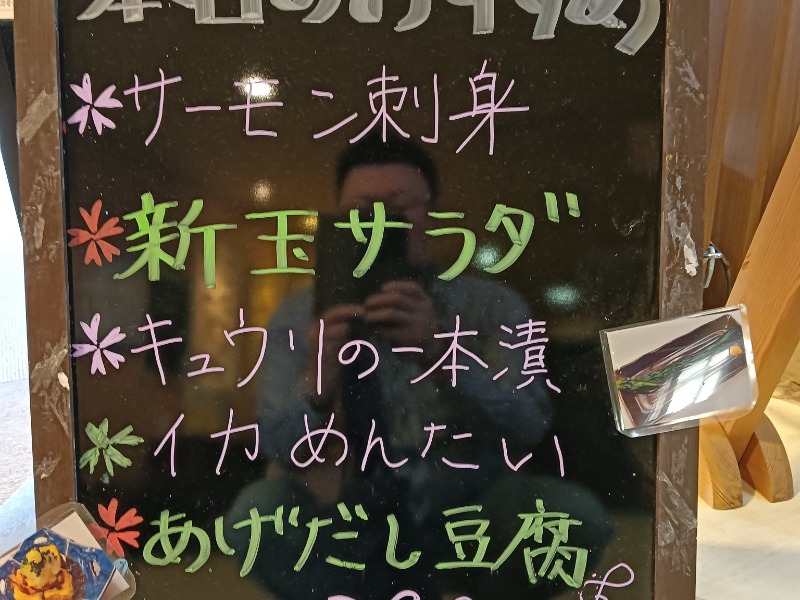 本日のおすすめ
サーモン刺身
新玉サラダ
キュウリの一本漬
イカめんたい
あげだし豆腐